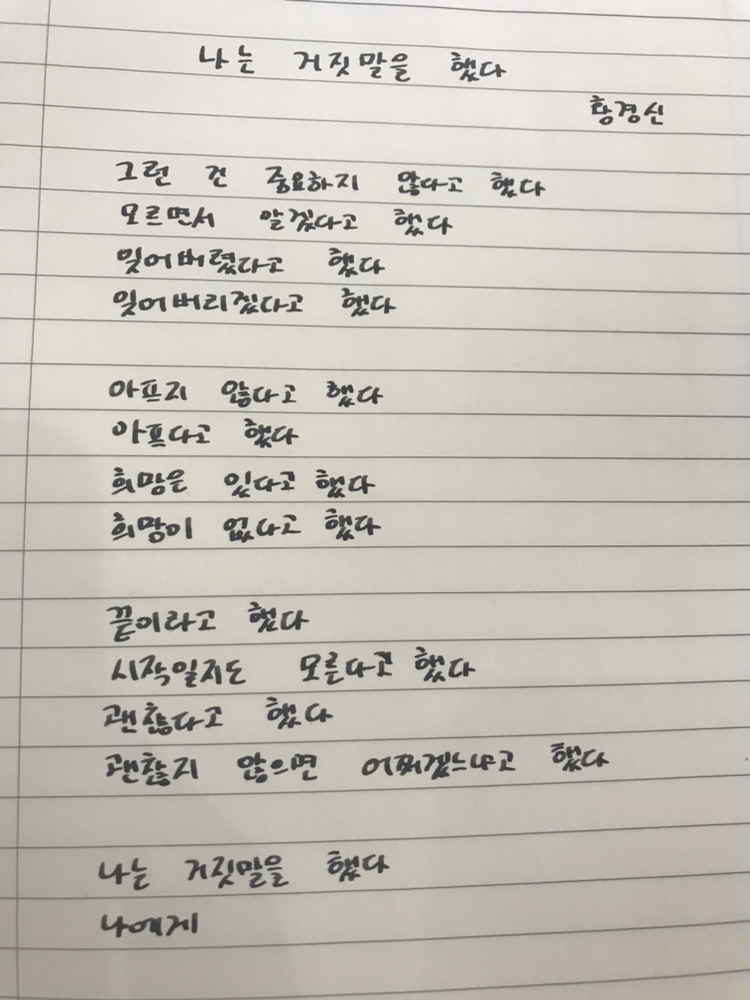 나는 거짓말을 했다
황경신
그런 건 중요하지 않다고 했다
모르면서 알겠다고 했다
잊어버렸다고 했다
잊어버리겠다고 했다
아프지 않다고 했다
아프다고 했다
희망은 있다고 했다
희망이 없다고 했다
끝이라고 했다
시작일지도 모른다고 했다
괜찮다고 했다
괜찮지 않으면 어쩌겠느냐고 했다
나는 거짓말을 했다
나에게